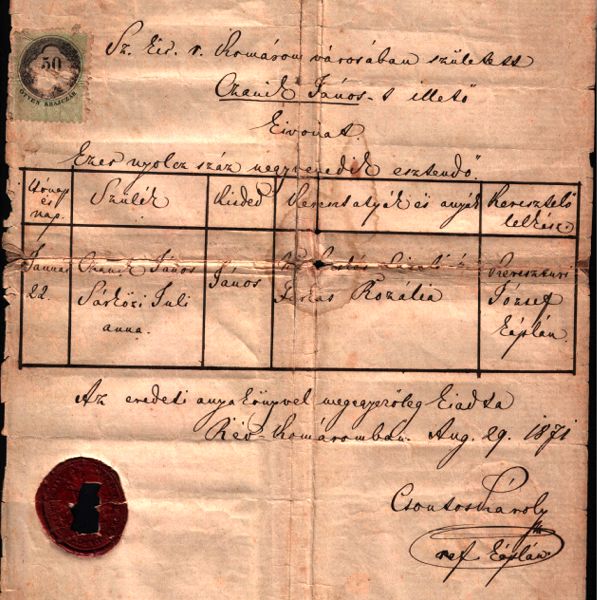 50
ÖTVEN KRAJCZÁR
Sz. kir. v. Komárom városában született
Czanik János-t illető
Kivonat.
Ezer nyolcz száz negyvenedik esztendő.
Hónap és nap.
Szülék
Kisded
Kereszt atyák és anyák
Keresztelő lelkész
Január 22.
Czanik János
Sárközi Juli
anna.
János
Farkas Rozália
Keresztúri
József
káplán.
Az eredeti anyakönyvel megegyezőleg kiadta
Rév-Komáromban. Aug. 29. 1871
Csontos Károly
ref káplán.